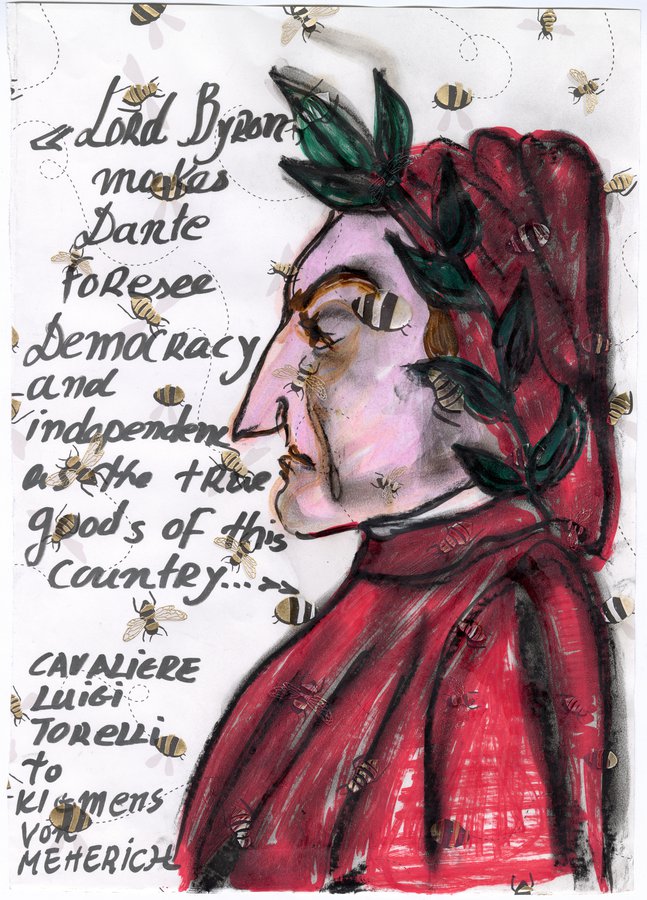 « Lord Byron
makes
Dante
foresee
Democracy
and
independenc
as the true
goods of this
country... »
CAVALIERE
LUIGI
TORELLI
to
Klemens
von
MEHERICH